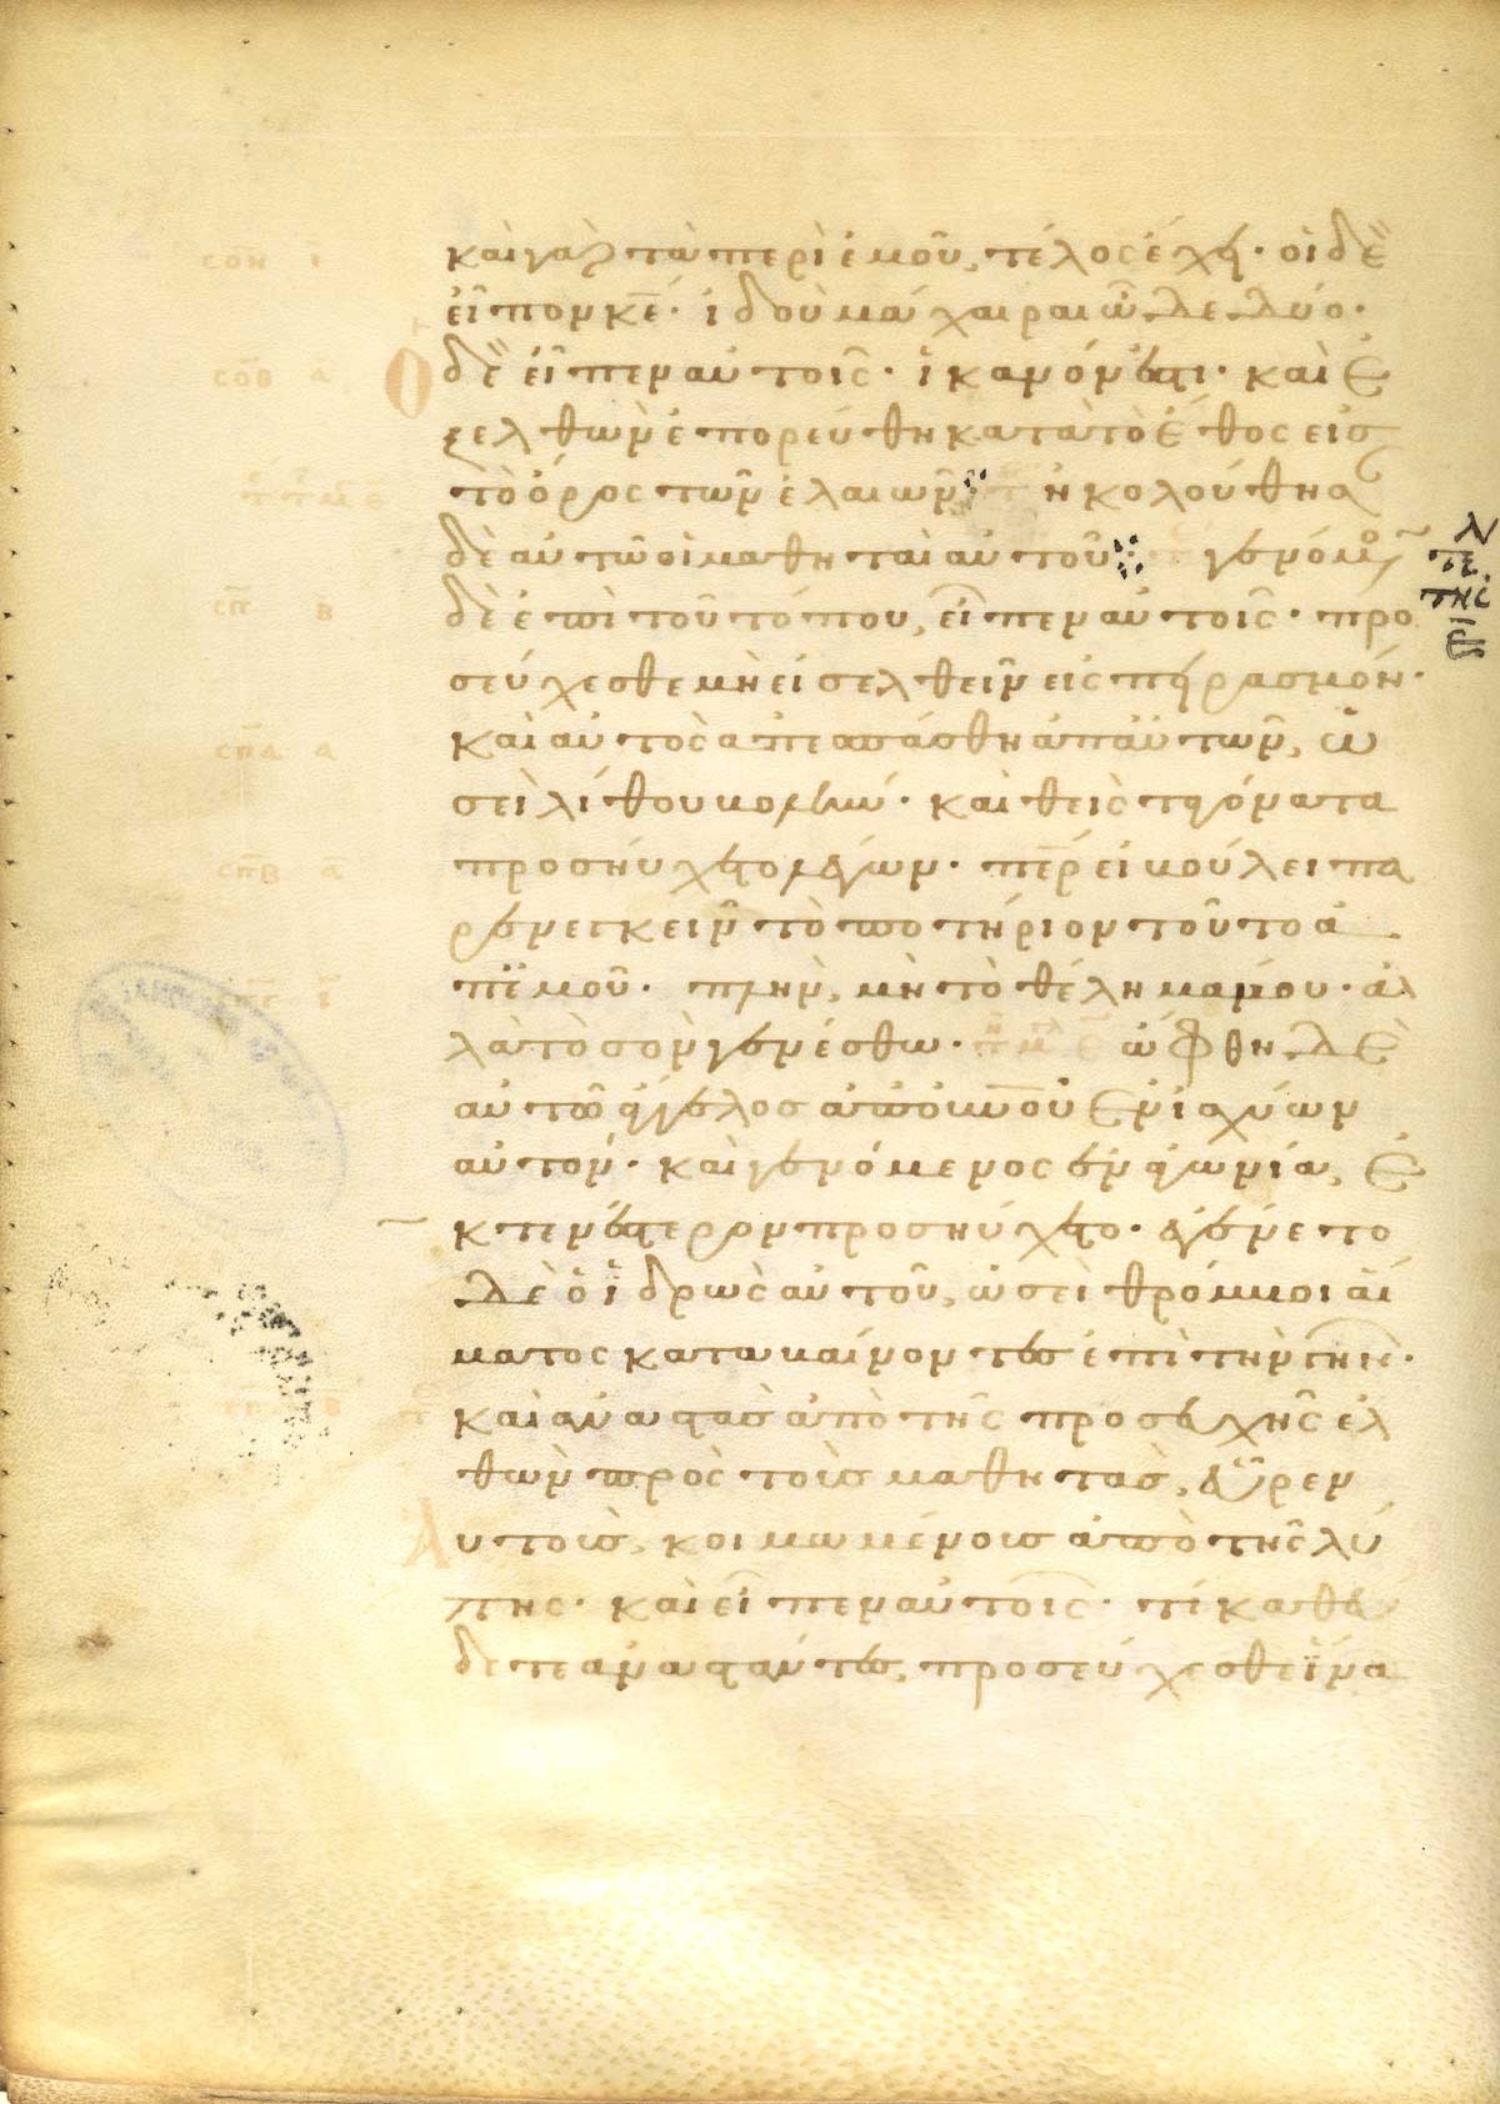 καὶ γὰρ τὰ περὶ ἐμοῦ, τέλος ἔχει· οἱ δὲ
εἶπον κ̅ε̅· ἰδοὺ μάχαιραι ὧδε δύο·
Ο δὲ εἶπεν αὐτοῖς· ἱκανόν ἐστι· καὶ ἐ
ξελθὼν ἐπορεύθη κατὰ τὸ ἔθος εἰς
τὸ ὄρος τῶν ἐλαιῶν· ἠκολούθησαν
δὲ αὐτῶ οἱ μαθηταὶ αὐτοῦ· γενόμενος
δὲ ἐπὶ τοῦ τόπου, εἶπεν αὐτοῖς· προ
σεύχεσθε μὴ εἰσελθεῖν εἰς πειρασμόν·
καὶ αὐτὸς ἀπεσπάσθη ἀπ' αὐτῶν, ὡ
σεὶ λίθου βολήν· καὶ θεὶς τὰ γόνατα
προσηύχετο λέγων· π̅ε̅ρ̅ εἰ βούλει πα
ρενεγκεῖν τὸ ποτήριον τοῦτο ἀ
π' ἐμοῦ· πλὴν, μὴ τὸ θέλημα μου· ἀλ
λὰ τὸ σὸν γενέσθω· ὤφθη δὲ
αὐτῶ ἄγγελος ἀπὸ οὐ̅ν̅οῦ ἐνισχύων
αὐτόν· καὶ γενόμενος ἐν ἀγωνία, ἐ
κτενέστερον προσηύχετο· ἐγένετο
δὲ ὁ ἱδρὼς αὐτοῦ, ὡσεὶ θρόμβοι αἵ
ματος καταβαίνοντες ἐπὶ τὴν γῆν·
καὶ ἀναστὰς ἀπὸ τῆς προσευχῆς ἐλ
θὼν πρὸς τοὺς μαθητὰς, εὗρεν
Αυτοὺς, κοιμωμένους ἀπὸ τῆς λύ
πης· καὶ εἶπεν αὐτοῖς· τί καθεύ
δετε ἀναστάντες, προσεύχεσθε ἵνα